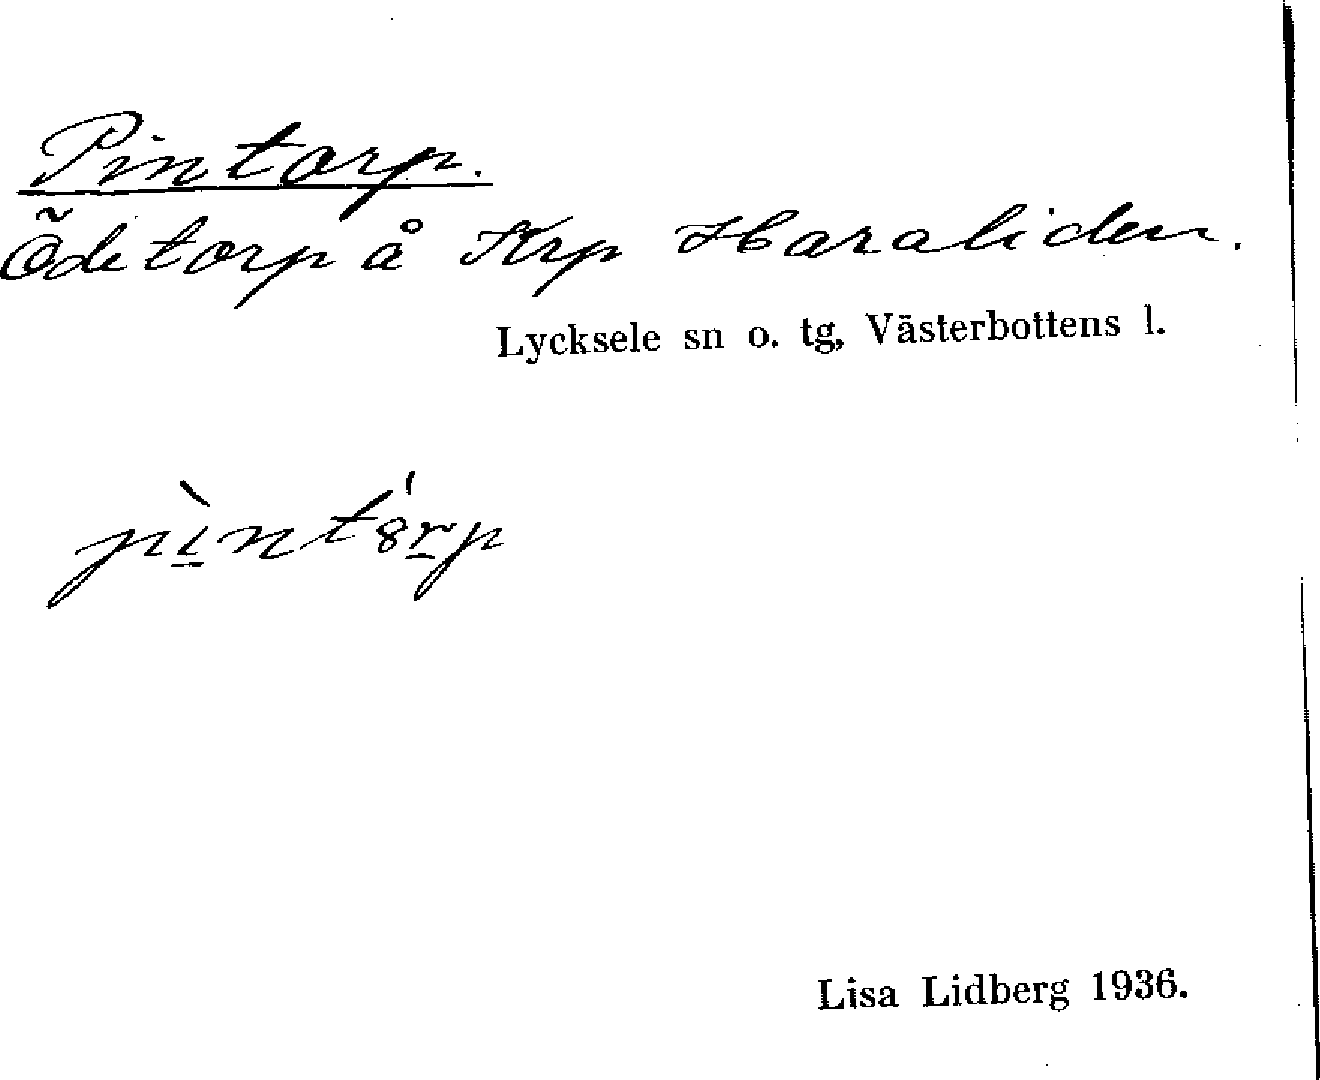 Pintorp.
Ödetorp å Krp Haraliden.
Lycksele sn o. tg, Västerbottens l.
pı̀ntȣ́rp
Lisa Lidberg 1936.